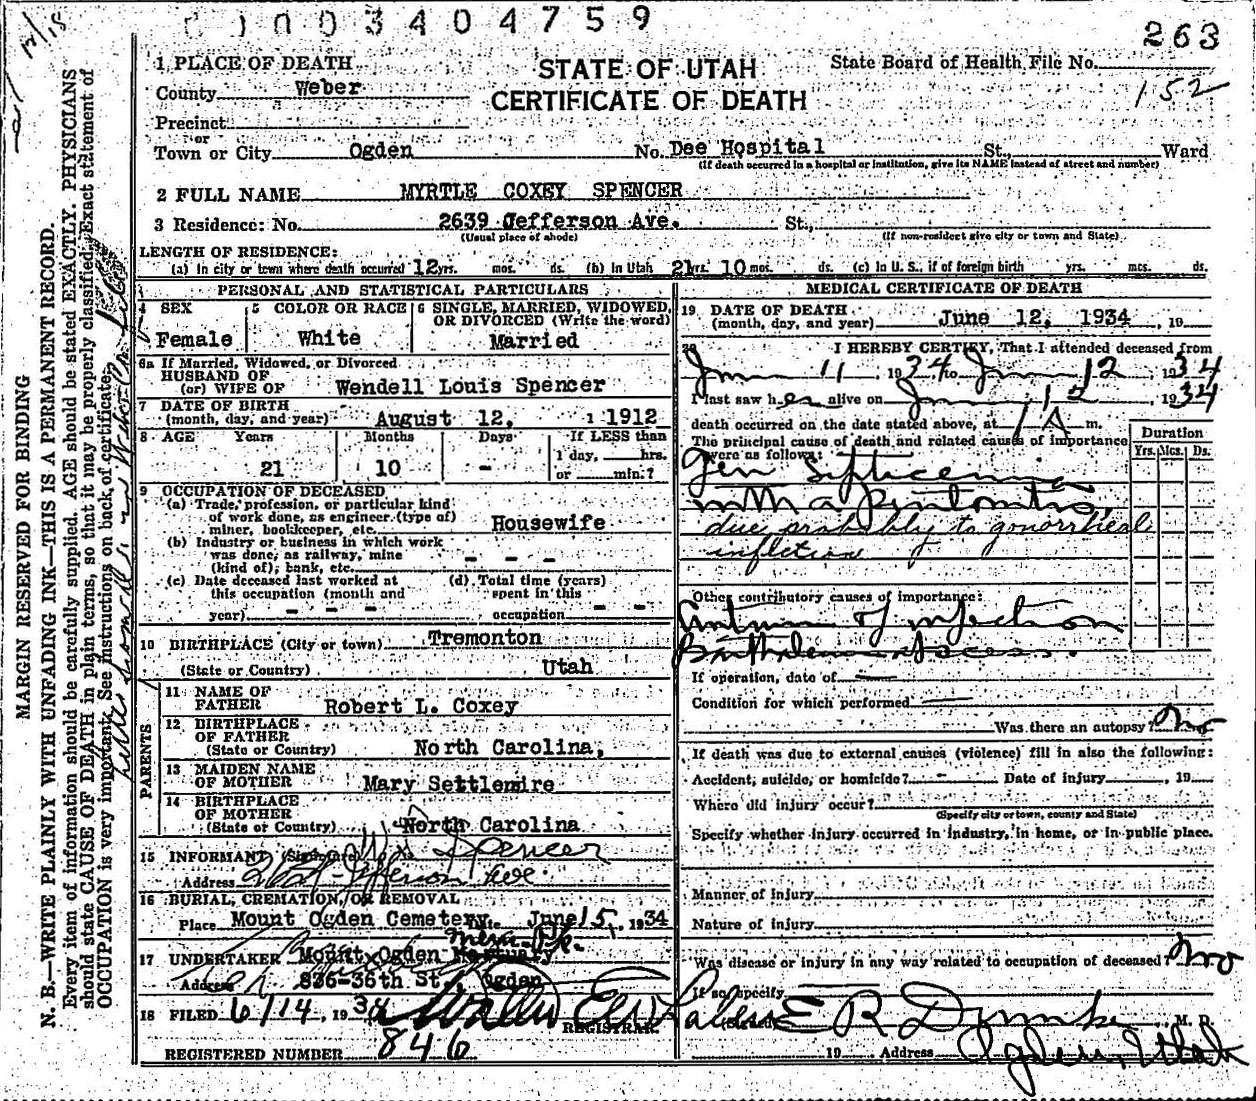 0100340475 9
263
1 PLACE OF DEATH
STATE OF UTAH
State Board of Health File No.
County Weber
CERTIFICATE OF DEATH
152
Precinct
or
Town or City Ogden No. Dee Hospital St., Ward
(If death occurred in a hospital or institution, give its NAME instead of street and number)
2 FULL NAME MYRTLE COXEY SPENCER
3 Residence: No. 2639 Jefferson Ave. St.,
(Usual place of abode) (If non-resident give city or town and State)
LENGTH OF RESIDENCE:
(a) In city or town where death occurred 12 yrs. mos. ds. (b) In Utah 21 yrs. 10 mos. ds. (c) In U. S., if of foreign birth yrs. mos. ds.
PERSONAL AND STATISTICAL PARTICULARS
4 SEX
Female
5 COLOR OR RACE
White
6 SINGLE, MARRIED, WIDOWED,
OR DIVORCED (Write the word)
Married
6a If Married, Widowed, or Divorced
HUSBAND OF
(or) WIFE OF Wendell Louis Spencer
7 DATE OF BIRTH
(month, day, and year) August 12, 1912
8 AGE Years Months Days If LESS than
1 day, hrs.
21 10 - or min.?
9 OCCUPATION OF DECEASED
(a) Trade, profession, or particular kind
of work done, as engineer (type of)
miner, bookkeeper, etc. Housewife
(b) Industry or business in which work
was done, as railway, mine
(kind of), bank, etc. - - -
(c) Date deceased last worked at
this occupation (month and
year) - - -
(d) Total time (years)
spent in this
occupation - -
10 BIRTHPLACE (City or town) Tremonton
(State or Country) Utah
PARENTS
11 NAME OF
FATHER Robert L. Coxey
12 BIRTHPLACE
OF FATHER
(State or Country) North Carolina,
13 MAIDEN NAME
OF MOTHER Mary Settlemire
14 BIRTHPLACE
OF MOTHER
(State or Country) North Carolina
15 INFORMANT (Signature) Spencer
Address Jefferson Ave.
16 BURIAL, CREMATION, OR REMOVAL
Place Mount Ogden Cemetery Date June 15, 1934
Mem. Pk.
17 UNDERTAKER Mount Ogden Mortuary
Address 836-36th St., Ogden
18 FILED 6/14, 1934
REGISTRAR
REGISTERED NUMBER 846
MEDICAL CERTIFICATE OF DEATH
19 DATE OF DEATH
(month, day, and year) June 12, 1934, 19
20 I HEREBY CERTIFY, That I attended deceased from
June 11 1934 to June 12 1934
I last saw her alive on June 12, 1934
death occurred on the date stated above, at 1 A m.
The principal cause of death and related causes of importance
were as follows:
Duration
Yrs. Mos. Ds.
Gen Septicemia
with a Peritonitis,
due probably to gonorrheal
infection
Other contributory causes of importance:
of infection
abscess.
If operation, date of
Condition for which performed
Was there an autopsy? No
If death was due to external causes (violence) fill in also the following:
Accident, suicide, or homicide? - Date of injury , 19
Where did injury occur?
(Specify city or town, county and State)
Specify whether injury occurred in industry, in home, or in public place.
Manner of injury
Nature of injury
Was disease or injury in any way related to occupation of deceased? No
If so, specify
(Signed) E R Dumke M. D.
19 Address Ogden, Utah
MARGIN RESERVED FOR BINDING
N. B.—WRITE PLAINLY WITH UNFADING INK—THIS IS A PERMANENT RECORD.
Every item of information should be carefully supplied. AGE should be stated EXACTLY. PHYSICIANS
should state CAUSE OF DEATH in plain terms, so that it may be properly classified. Exact statement of
OCCUPATION is very important. See instructions on back of certificate.